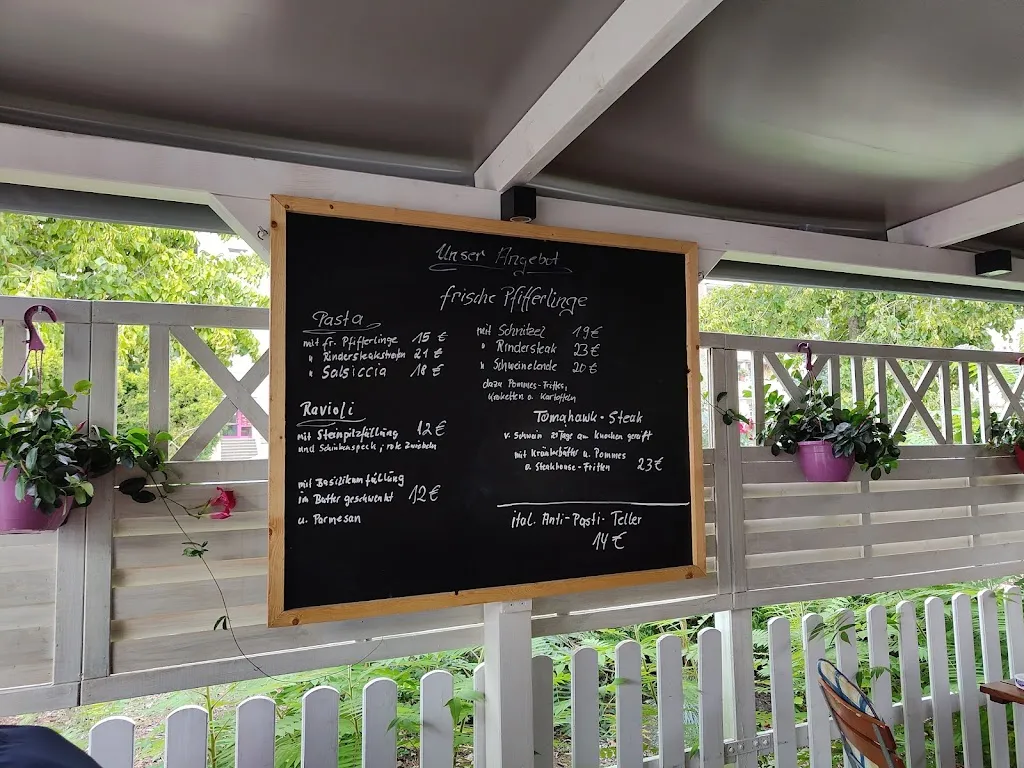 Unser Angebot
frische Pfifferlinge
Pasta
mit fr. Pfifferlinge 15 €
" Rindersteakstreifen 21 €
" Salsiccia 18 €
Ravioli
mit Steinpilzfüllung 12 €
und Schinkenspeck, rote Zwiebeln
mit Basilikumfüllung
in Butter geschwenkt 12 €
u. Parmesan
mit Schnitzel 19 €
" Rindersteak 23 €
" Schweinelende 20 €
dazu Pommes-Frittes,
Kroketten o. Kartoffeln
Tomahawk-Steak
v. Schwein 20 Tage am Knochen gereift
mit Kräuterbutter u. Pommes
o. Steakhouse-Fritten 23 €
ital. Anti-Pasti-Teller
14 €